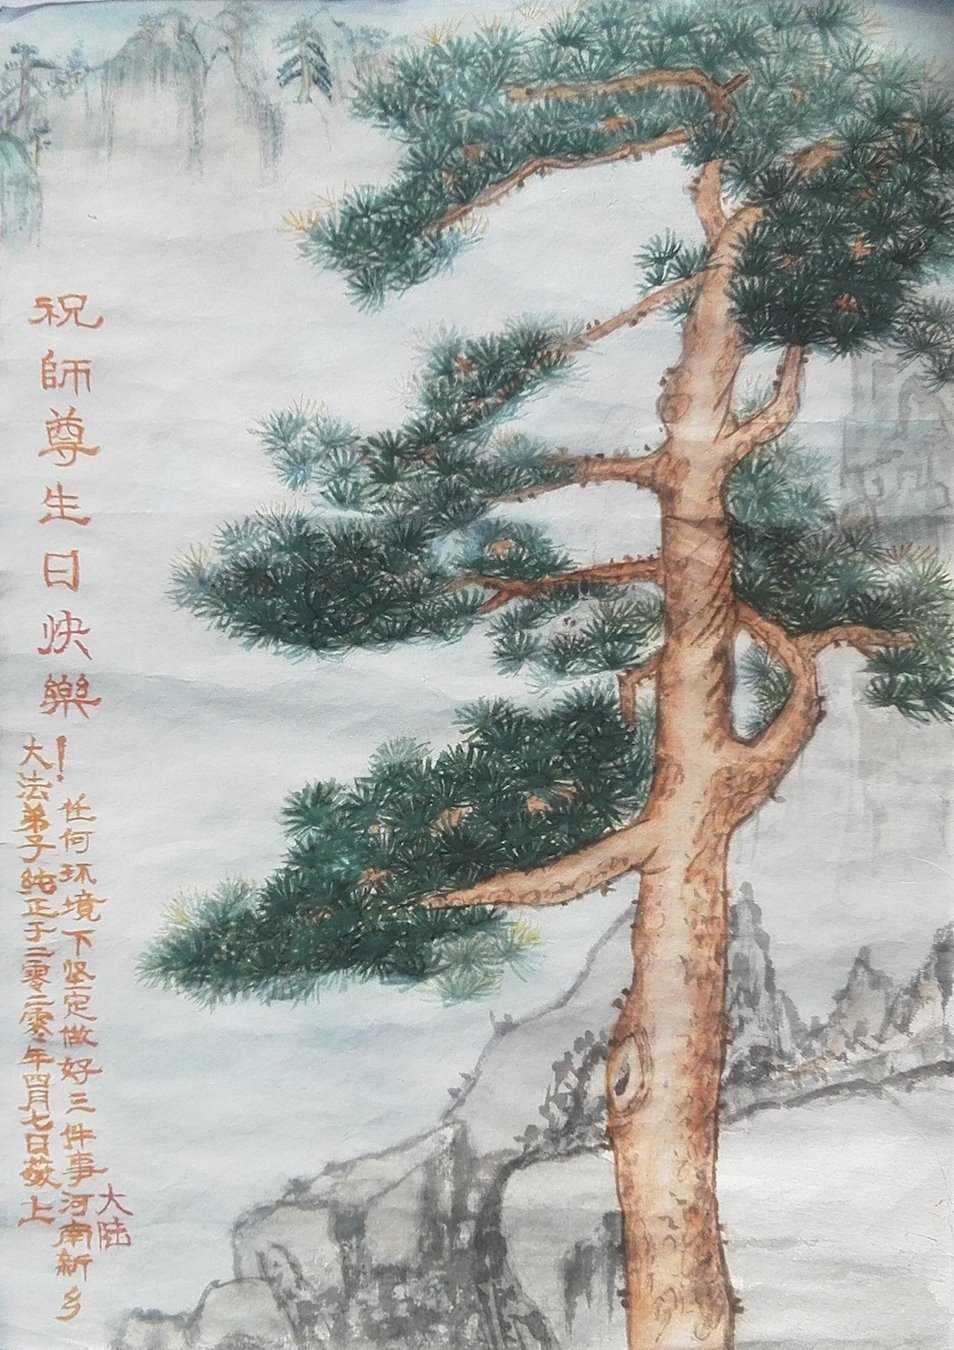 祝師尊生日快樂！
任何环境下坚定做好三件事
大陆
河南新乡
大法弟子纯正于二零二零年四月七日敬上